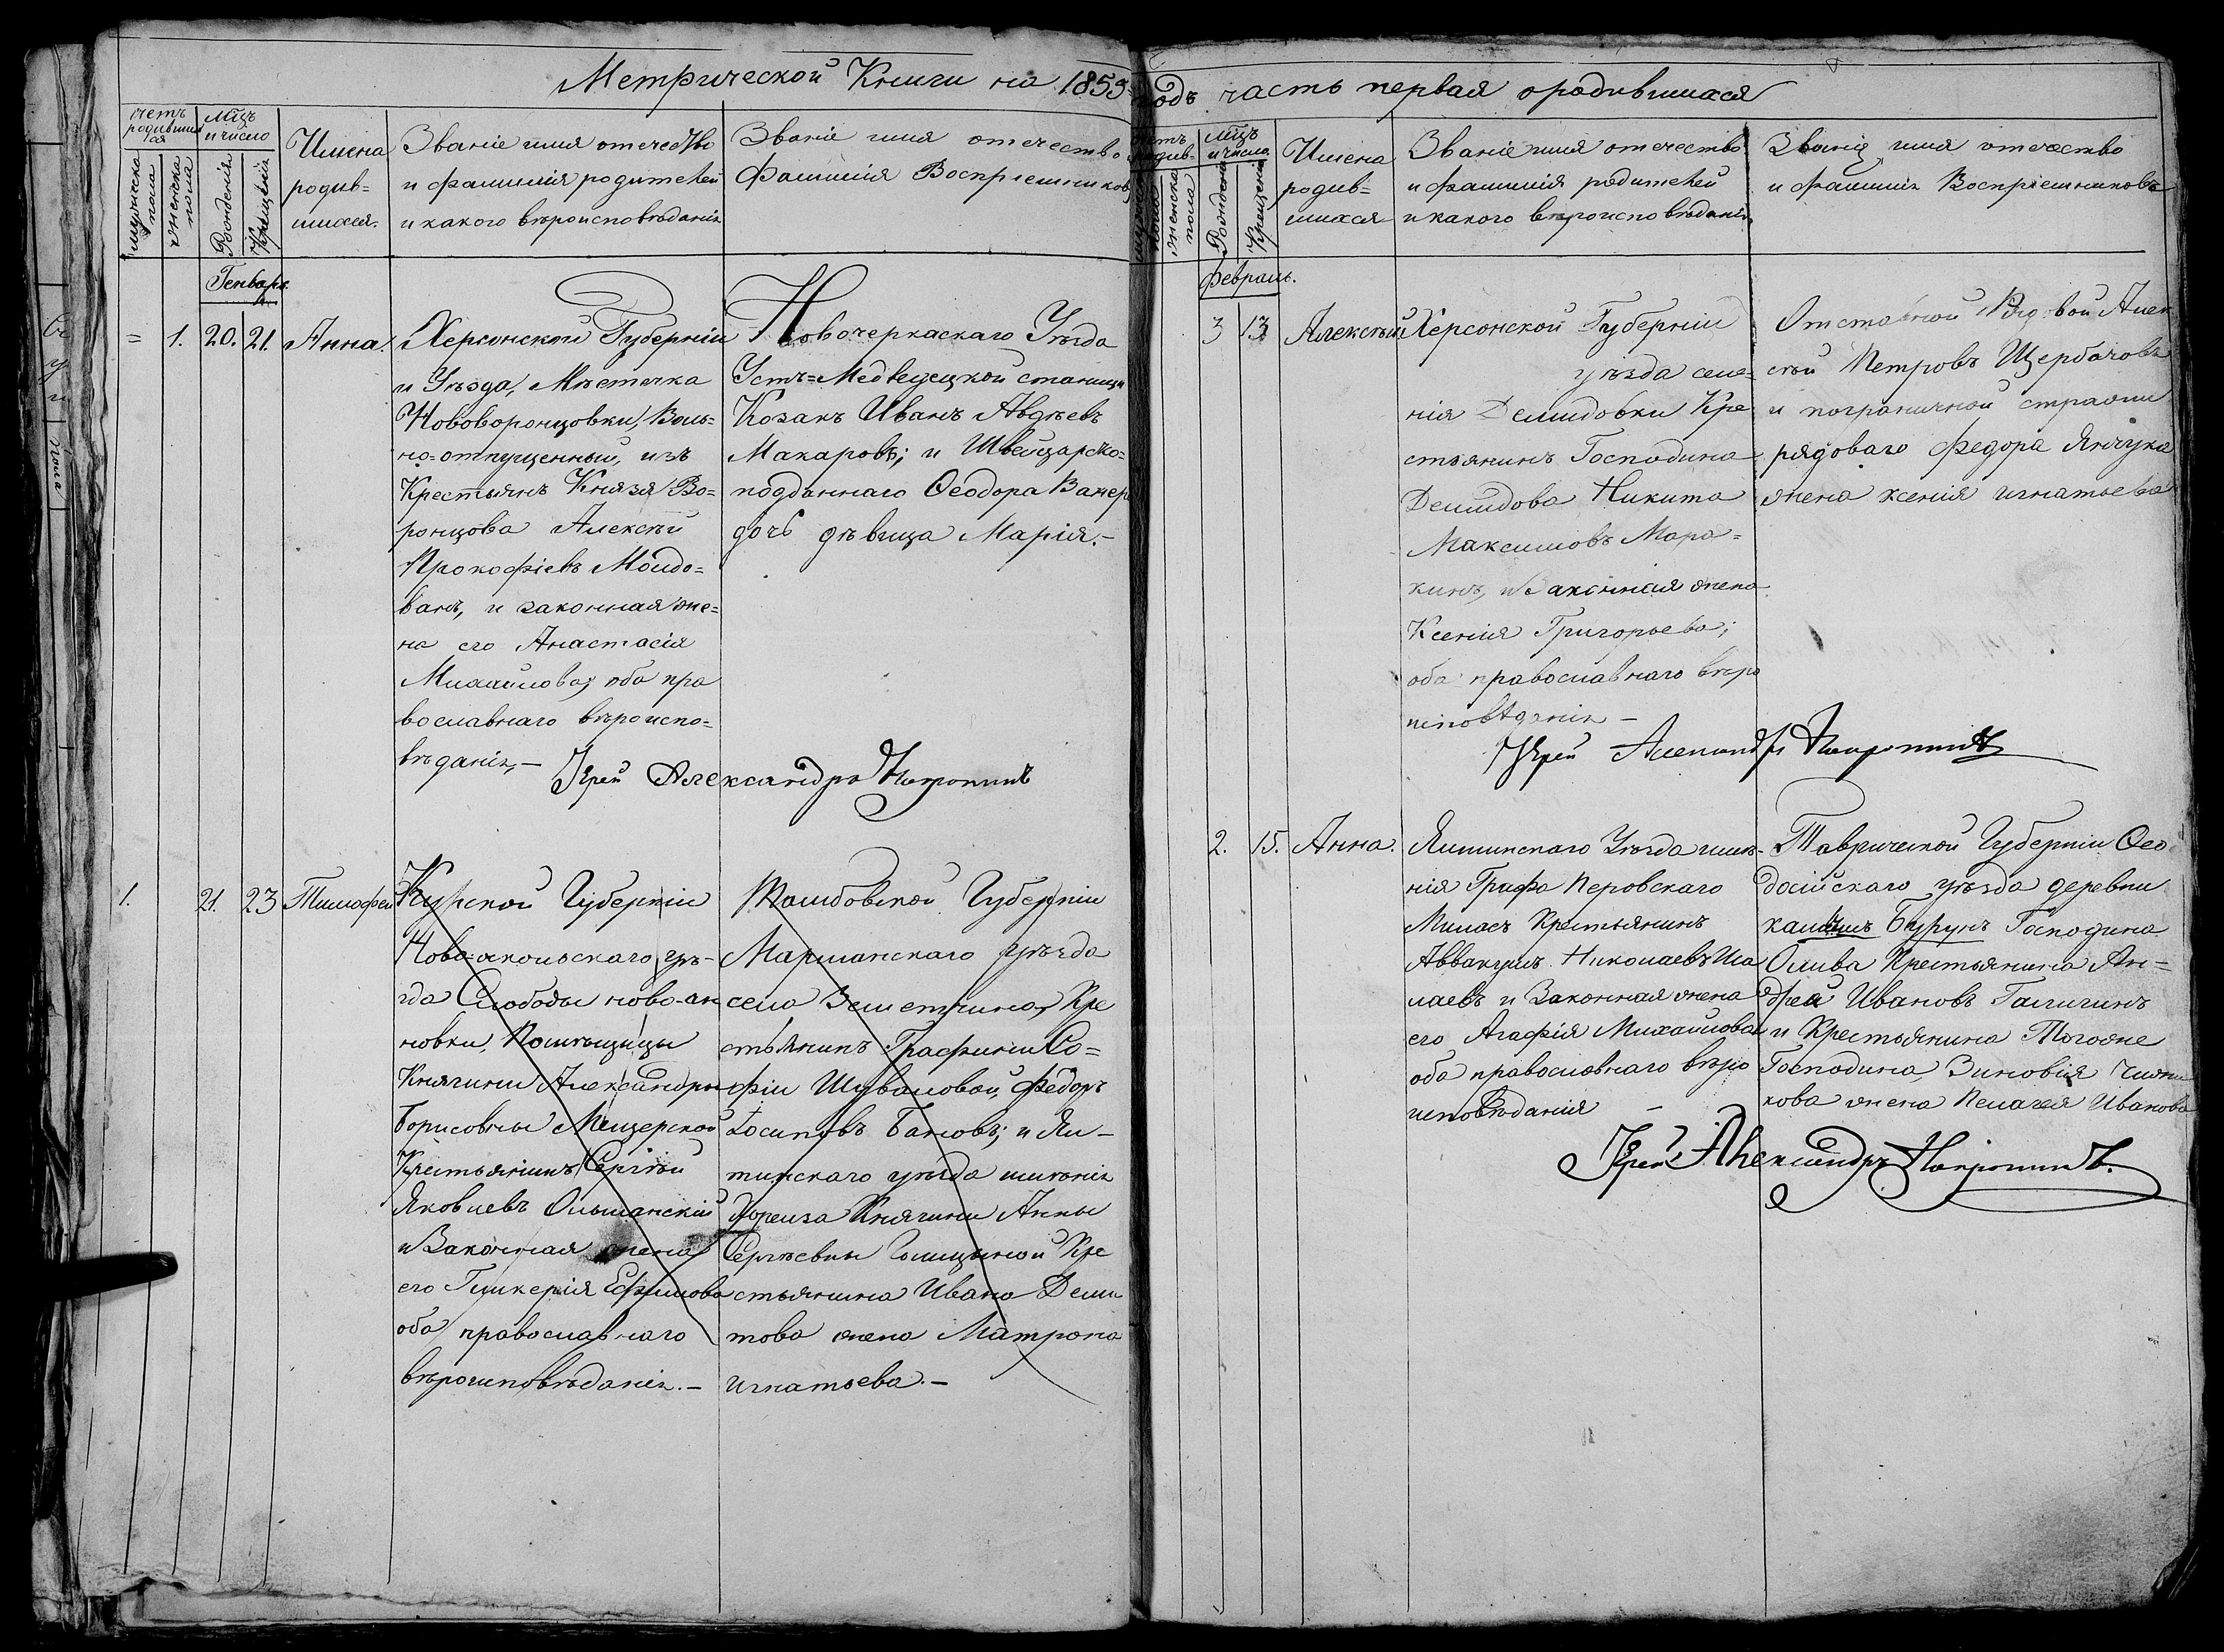 Метрической Книги на 1859
годъ часть первая о родившихся
счетъ родившихся
мужеска пола
женска пола
Мцъ и число
Рожденія
Крещенія
Имена
родив=
шихся.
Званіе имя отечество
и фамилія родителей
и какого вѣроисповѣданія
Званіе имя отечество
Фамилія Воспріемниковъ
Генварь.
= 1. 20. 21. Анна.
Херсонской Губерніи
и Уѣзда, Мѣстечка
Нововоронцовки, Воль=
но=отпущенный, изъ
Крестьянъ Князя Во=
ронцова Алексѣй
Прокофіевъ Молдо=
ванъ, и законная же=
на его Анастасія
Михайлова, оба пра
вославнаго вѣроиспо=
вѣданія,—
Новочеркаскаго Уѣзда
Усть=Медведецкой станицы
Козакъ Иванъ Авдѣевъ
Макаровъ; и Швейцарско=
подданнаго Ѳеодора Вакер
дочь дѣвица Марія.—
Іерей Александръ
1. 21. 23 Тимофей
Курской Губерніи
Ново=оскольскаго уѣ-
зда Слободы ново-ан
новки, Помѣщицы
Княгини Александры
Борисовны Мещерской
Крестьянинъ Сергѣй
Яковлевъ Ольшанскій
и Законная жена
его Гликерія Ефимова
оба православнаго
вѣроисповѣданія.—
Тамбовской Губерніи
Маршанскаго уѣзда
села Земетчина, Кре
стьянинъ Графини Со=
фіи Шуваловой, Федоръ
Іосиповъ Бановъ; и Ял-
тинскаго уѣзда имѣнія
Кореиза Княгини Анны
Сергѣевны Голицыной Кре
стьянина Ивана Деми
това жена Матрона
Игнатьева.—
счетъ родив-
женска пола
Мцъ и число
Рожденія
Крещенія
Имена
родив=
шихся
Званіе имя отечество
и фамилія родителей
и какого вѣроисповѣданія
Званіе имя отечество
и фамилія Воспріемниковъ
Февраль.
3 13 Алексѣй
Херсонской Губерніи
уѣзда селе=
нія Демидовки Кре
стьянинъ Господина
Демидова Никита
Максимовъ Мара=
кинъ, и Законная жена
Ксенія Григорьева;
оба православнаго вѣро
исповѣданія —
Отставной Рядовой Алек
сѣй Петровъ Щербачовъ
и пограничной стражи
рядоваго Федора Янчука
жена Ксенія Игнатьева
Іерей Александръ
2. 15. Анна.
Ялтинскаго Уѣзда имѣ-
нія Графа Перовскаго
Миласъ Крестьянинъ
Аввакумъ Николаевъ Иса
лаевъ и Законная жена
его Агафія Михайлова
оба православнаго вѣро
исповѣданія —
Таврической Губерніи Ѳео
досійскаго уѣзда деревни
Бурунъ Господина
Олива Крестьянина Ан=
дрей Ивановъ Галичинъ
и Крестьянина Тогоже
Господина, Зиновія Чижи
кова жена Пелагея Иванова
Іерей Александръ